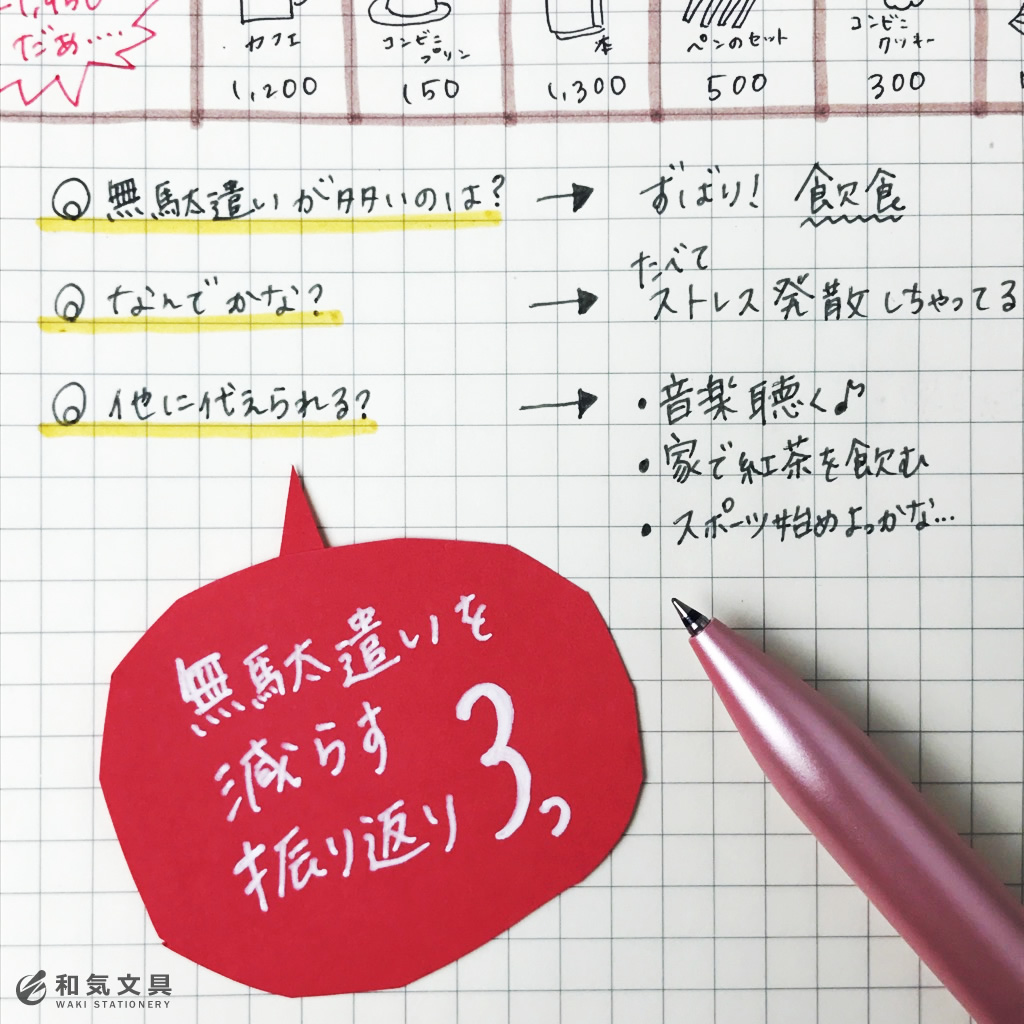 だぁ....
カフェ
1,200
コンビニ
プリン
150
本
1,300
ペンのセット
500
コンビニ
クッキー
300
Q 無駄遣いが多いのは? → ずばり! 飲食
Q なんでかな? → たべて
ストレス発散しちゃってる
Q 他に代えられる? → ・音楽聴く♪
・家で紅茶を飲む
・スポーツ始めよっかな...
無駄遣いを
減らす
振り返り3つ
和気文具
WAKI STATIONERY